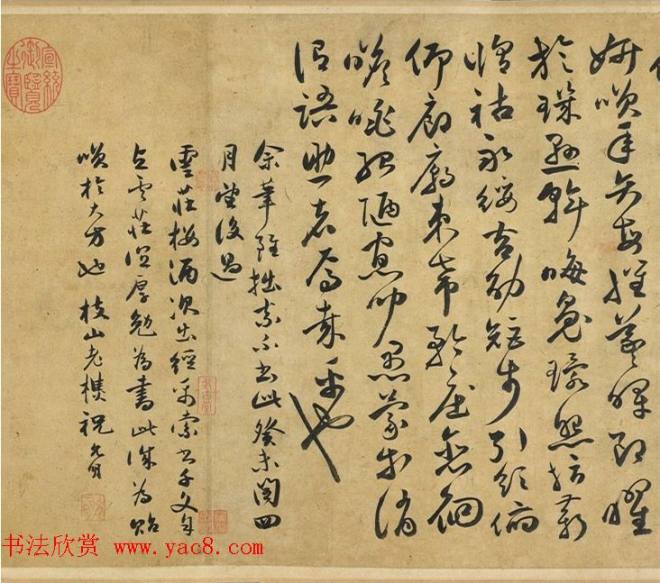 妍咲年矢每催羲暉朗曜
旋璣懸斡晦魄環照指薪
脩祜永綏吉劭矩步引領俯
仰廊廟束帶矜莊徘徊
瞻眺孤陋寡聞愚蒙等誚
謂語助者焉哉乎也
余筆雖拙素不書此癸未閏四
月望後過
雲莊酒次出經索書千文
雲莊深厚勉為書此深為貽
咲於大方也 枝山老樵祝允明
宣統御覽之寶
书法欣赏 www.yac8.com